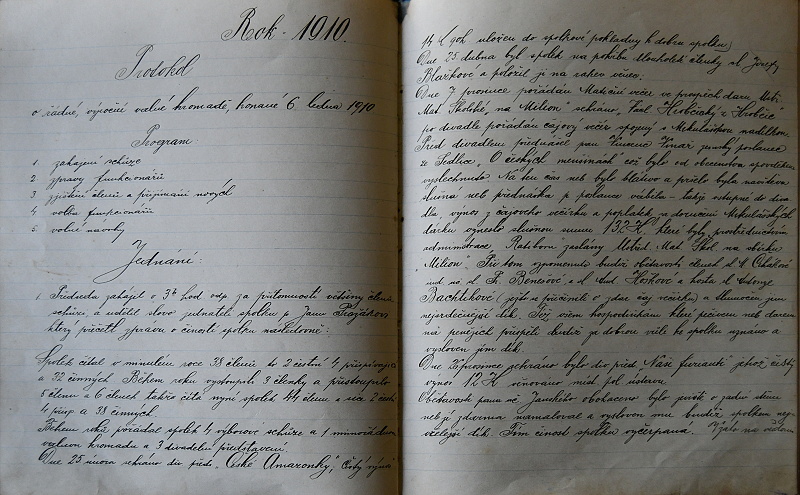 Rok - 1910.
Protokol
o řádné, výroční valné hromadě, konané 6. ledna 1910
Program:
1. zahájení schůze
2. zprávy funkcionářů
3. zjištění členů a přijímání nových
4. volba funkcionářů
5. volné návrhy
Jednání:
1. Předseda zahájil o 3h hod odp za přítomnosti většiny členů
schůzi, a udělil slovo jednateli spolku p. Janu
který přečetl zprávu o činosti spolku následovně:
Spolek čítal v minulém roce 38 členů to 2 čestní 4 přispívající
a 32 činných Během roku vystoupili 3 členky a přistoupilo
5 členů a 6 členek takže čítá nyní spolek 44 členů a sice 2 čestní
4 přisp a 38 činných.
Během roku pořádal spolek 4 výborové schůze a 1 mimořádnou
valnou hromadu a 3 divadelní představení.
Dne 25 února sehráno div předs. „České Amazonky", čistý výnos
14 K 90h uložen do spolkové pokladny k dobru spolku
Dne 25 dubna byl spolek na pohřbu členky sl. Josefy
Blažkové a položil jí na rakev věnec.
Dne 7 prosince pořádán Matiční večer ve prospěch daru Ústř.
Mat. Školské „na Milion" sehráno „Karl Hrobčický z Hrobčic"
po divadle pořádán čajový večer spojený s Mikulášskou nadílkou.
Před divadlem přednášel pan Vincenc zemský poslanec
ze Sedlce, „O českých menšinách" což bylo od obecenstva
vyslechnuto. Na ten čas neb bylo blátivo a přišlo byla návštěva
slušná neb přednáška p. poslance vábila - takže vstupné do diva
dla, výnos z čajového večírku a poplatek za doručení Mikulášských
dárků vyneslo slušnou sumu 132 K které byly prostřednictvím
administrace „Ratibora" zaslány Ústřed. Mat. Škol. na sbírku
„Milion". Při tom vzpomenuto budiž obětavosti členek sl. M.
sl. Fr. Benešové a sl. And. Hoškové a hosta sl. Antonie
Bachlíkové (jež se přičinili o zdar čaj večírku) a tlumočen jim
nejsrdečnější dík. Též všem hospodyňkám které pečivem neb darem
na penězích přispěli budiž za dobrou vůli ku spolku uznáno a
vysloven jim dík.
Dne prosince sehráno bylo div před „Naši furianti" jehož čistý
výnos 12 K věnováno míst. pol. ústavu.
Obětavostí pana uč. Janského obohaceno bylo jeviště o zadní stěnu
neb ji zdarma namaloval a vysloven mu budiž spolkem nej
vřelejší dík. Tím činost spolku vyčerpána. Vzato na vědomí